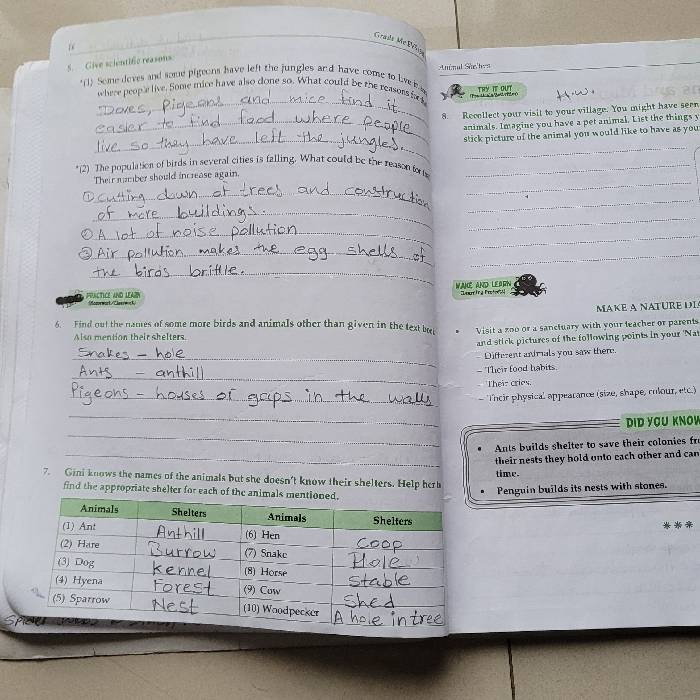 Grade Me EVS
5. Give scientific reasons:
*(1) Some doves and some pigeons have left the jungles and have come to live in
where people live. Some mice have also done so. What could be the reasons for
Doves, Pigeons and mice find it
easier to find food where people
live so they have left the jungles.
*(2) The population of birds in several cities is falling. What could be the reason for
Their number should increase again.
① cutting down of trees and construction
of more buildings.
② A lot of noise pollution
③ Air pollution makes the egg shells of
the birds brittle.
PRACTICE AND LEARN
(Homework/Classwork)
6. Find out the names of some more birds and animals other than given in the text
Also mention their shelters.
Snakes - hole
Ants - anthill
Pigeons - houses or gaps in the walls
7. Gini knows the names of the animals but she doesn't know their shelters. Help her
find the appropriate shelter for each of the animals mentioned.
Animals Shelters Animals Shelters
(1) Ant Anthill (6) Hen Coop
(2) Hare Burrow (7) Snake Hole
(3) Dog kennel (8) Horse stable
(4) Hyena Forest (9) Cow Shed
(5) Sparrow Nest (10) Woodpecker A hole in tree
Animal Shelters
TRY IT OUT
H.W.
8. Recollect your visit to your village. You might have seen
animals. Imagine you have a pet animal. List the things
stick picture of the animal you would like to have as
MAKE AND LEARN
MAKE A NATURE
• Visit a zoo or a sanctuary with your teacher or parents
and stick pictures of the following points in your
- Different animals you saw there.
- Their food habits.
- Their cries.
- Their physical appearance (size, shape, colour, etc.)
DID YOU KNOW
• Ants builds shelter to save their colonies
their nests they hold onto each other and can
time.
• Penguin builds its nests with stones.
***